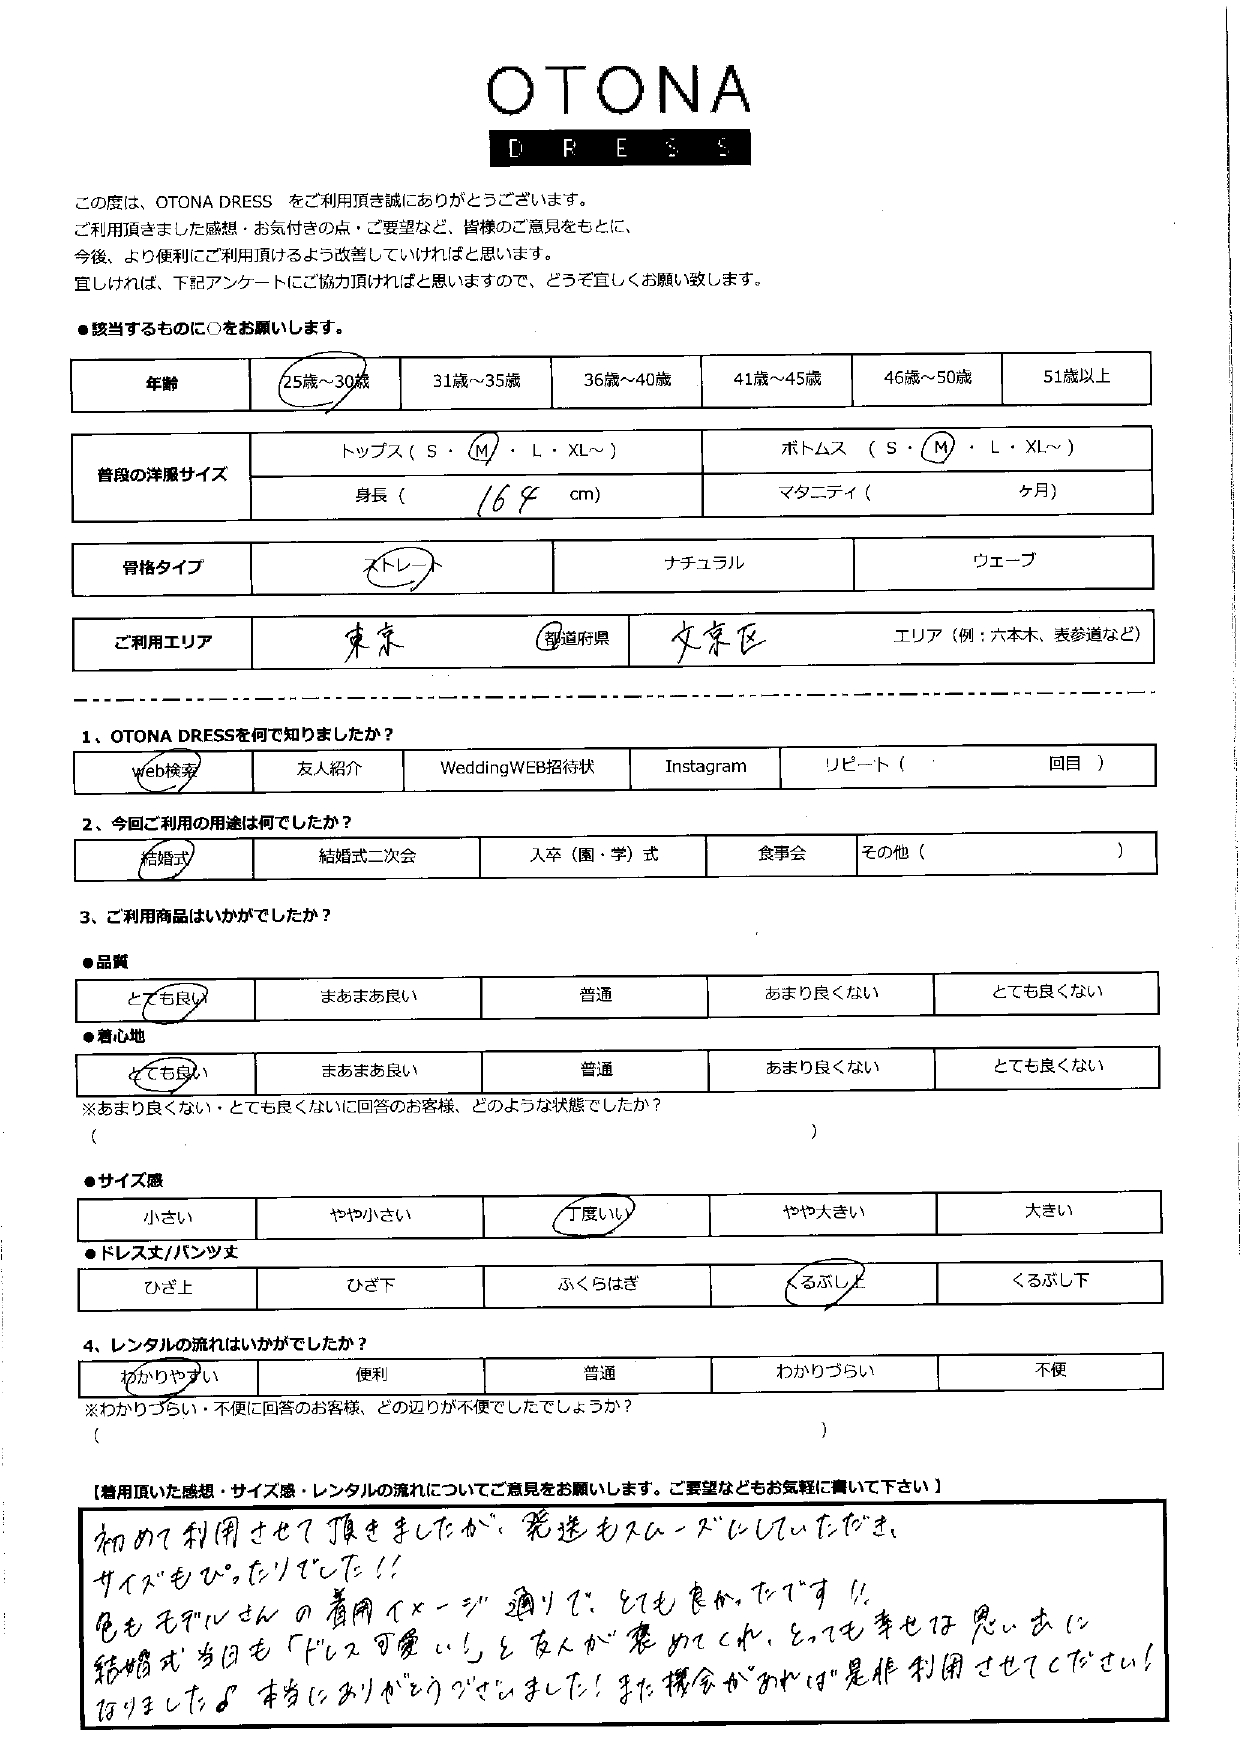 OTONA
DRESS
この度は、OTONA DRESS をご利用頂き誠にありがとうございます。
ご利用頂きました感想・お気付きの点・ご要望など、皆様のご意見をもとに、
今後、より便利にご利用頂けるよう改善していければと思います。
宜しければ、下記アンケートにご協力頂ければと思いますので、どうぞ宜しくお願い致します。
●該当するものに○をお願いします。
年齢 25歳～30歳 31歳～35歳 36歳～40歳 41歳～45歳 46歳～50歳 51歳以上
普段の洋服サイズ トップス ( S ・ M ・ L ・ XL～ ) ボトムス ( S ・ M ・ L ・ XL～ )
身長 ( 164 cm) マタニティ ( ケ月)
骨格タイプ ストレート ナチュラル ウェーブ
ご利用エリア 東京 都道府県 文京区 エリア（例：六本木、表参道など）
1、OTONA DRESSを何で知りましたか？
web検索 友人紹介 WeddingWEB招待状 Instagram リピート ( 回目 )
2、今回ご利用の用途は何でしたか？
結婚式 結婚式二次会 入卒（園・学）式 食事会 その他 ( )
3、ご利用商品はいかがでしたか？
●品質
とても良い まあまあ良い 普通 あまり良くない とても良くない
●着心地
とても良い まあまあ良い 普通 あまり良くない とても良くない
※あまり良くない・とても良くないに回答のお客様、どのような状態でしたか？
( )
●サイズ感
小さい やや小さい 丁度いい やや大きい 大きい
●ドレス丈/パンツ丈
ひざ上 ひざ下 ふくらはぎ くるぶし上 くるぶし下
4、レンタルの流れはいかがでしたか？
わかりやすい 便利 普通 わかりづらい 不便
※わかりづらい・不便に回答のお客様、どの辺りが不便でしたでしょうか？
( )
【着用頂いた感想・サイズ感・レンタルの流れについてご意見をお願いします。ご要望などもお気軽に書いて下さい】
初めて利用させて頂きましたが、発送もスムーズにしていただき、
サイズもぴったりでした!!
色もモデルさんの着用イメージ通りで、とても良かったです!!
結婚式当日も「ドレス可愛い!」と友人が褒めてくれ、とっても幸せな思い出に
なりました♪ 本当にありがとうございました! また機会があれば是非利用させてください!